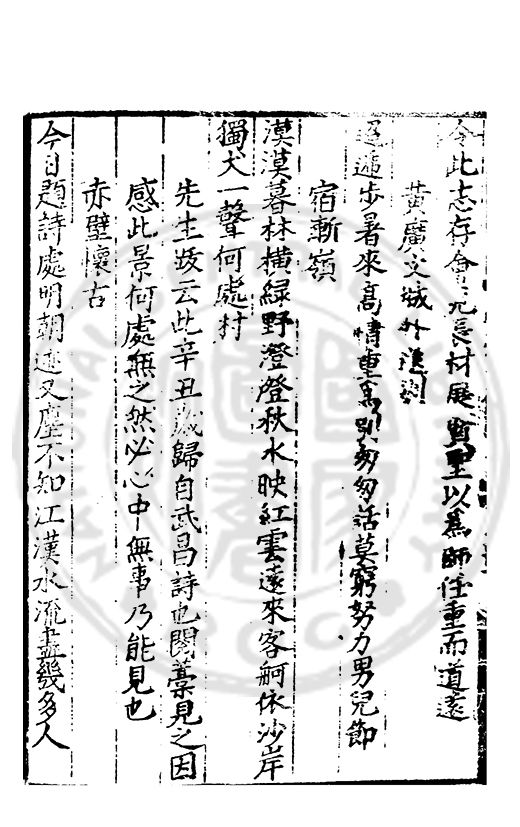 今此志存會元長材展賢聖以為師任重而道遠
黃廣文城外
迢遞步暑來高情重為別匆匆話莫窮努力男兒節
宿蘄嶺
漠漠暮林橫綠野澄澄秋水映紅雲遠來客舸依沙岸
獨犬一聲何處村
先生跋云此辛丑歲歸自武昌詩也閱藁見之因
感此景何處無之然必心中無事乃能見也
赤壁懷古
今日題詩處明朝迹又塵不知江漢水流盡幾多人